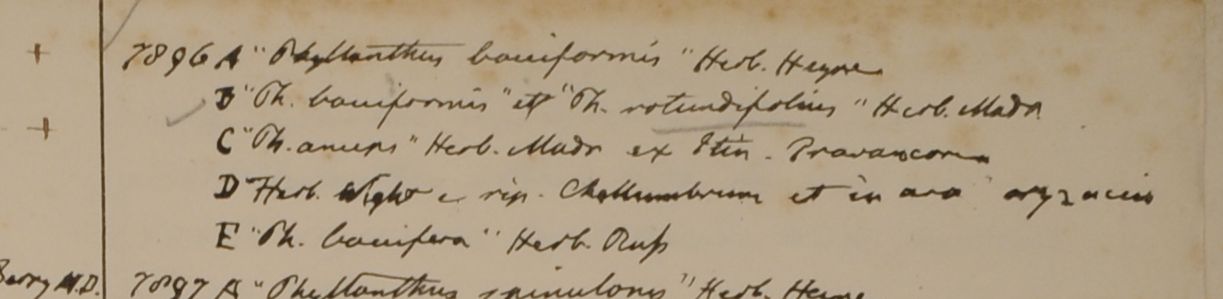 7896 A "Phyllanthus bacciformis" Herb. Heyne
B "Ph. bacciformis" et "Ph. rotundifolius" Herb. Madr
C "Ph. anceps" Herb. Madr ex Itin. Travancoria
D Herb. Wight e rip. Chellumbrum et in oryzaceis
E "Ph. baccifera" Herb. Russ
Barry M.D. 7897 A "Phyllanthus spinulosus" Herb. Heyne